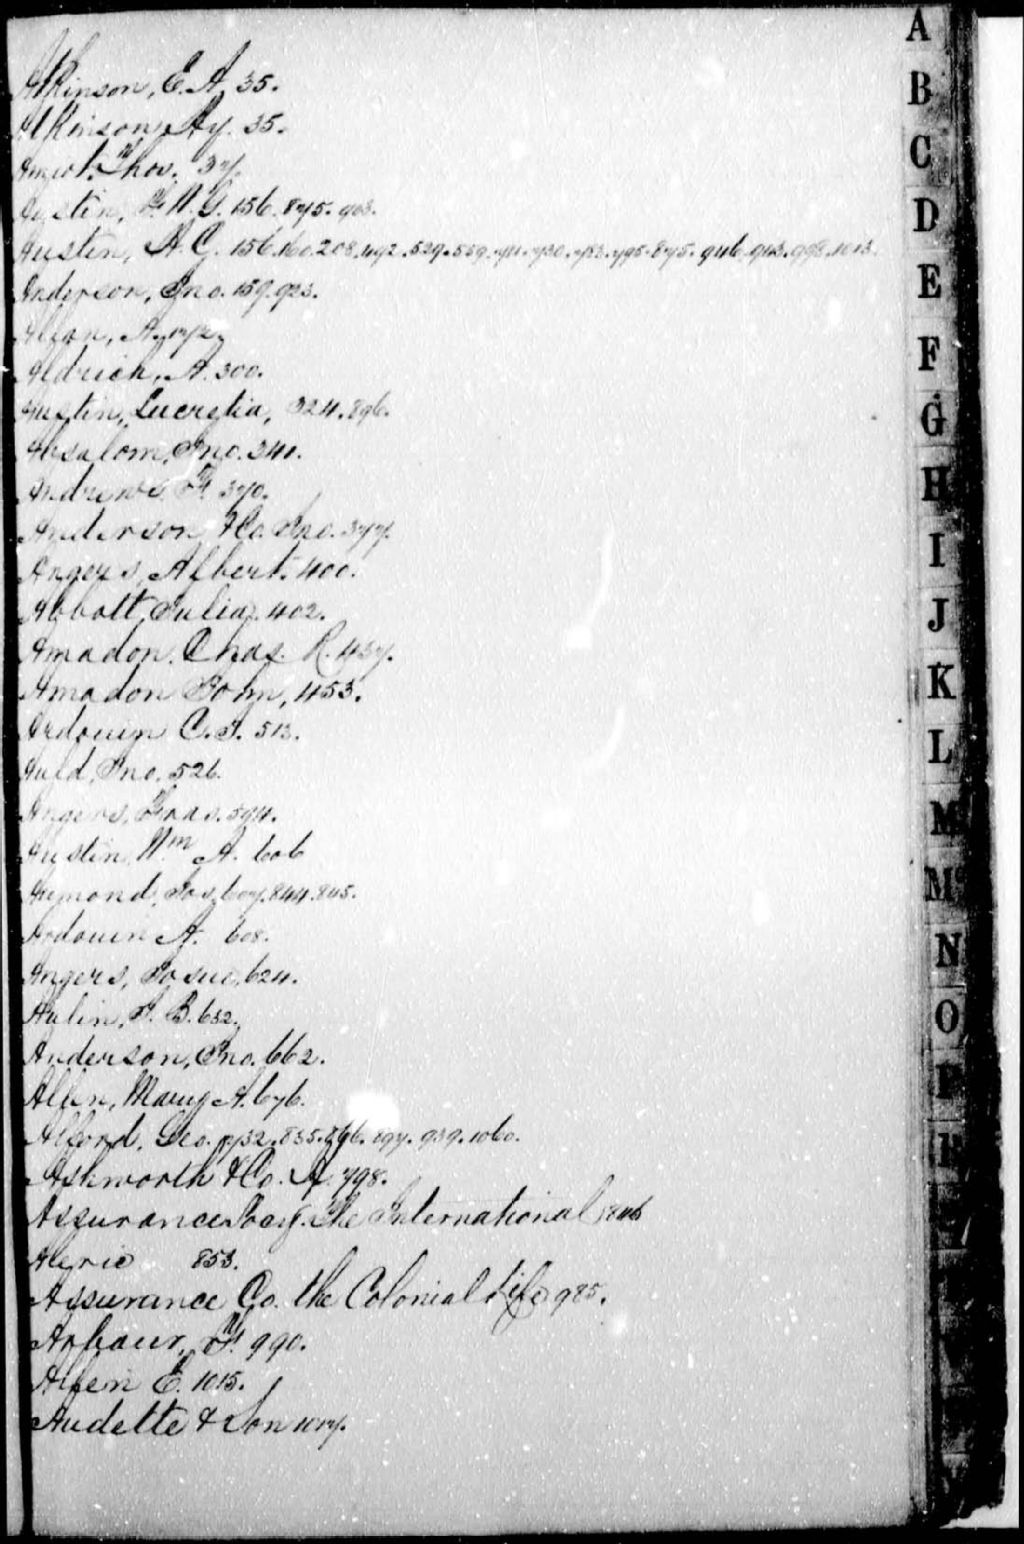 Atkinson, E. A. 35.
Atkinson, Hy. 35.
Amiot, Thos. 37.
Austin, F. W. G. 156. 875. 903.
Austin, H. C. 156. 160. 208. 492. 529. 559. 875. 946. 998. 1013.
Anderson, Jno. 159. 923.
Allan, A.
Aldrich, A. 300.
Austin, Lucretia, 324. 896.
Absalom, Jno. 341.
Andrews, F. 370.
Anderson & Co. Jno. 377.
Angers, Albert. 400.
Abbott, Julia, 402.
Amadon, Chas. R. 437.
Amadon John, 453.
Ardouin C. J. 513.
Auld, Jno. 526.
Angers, Fras. 594.
Austin, Wm A. 606
Aumond, Jos, 607. 844. 845.
Ardouin A. 608.
Angers, Josue, 624.
Aulin, J. B. 632.
Anderson, Jno. 662.
Allen, Mary A. 676.
Alford, Geo. 732. 835. 896. 897. 939. 1060.
Ashworth & Co. A. 798.
Assurance Socy. The International 846
Aleric 853.
Assurance Co. the Colonial Life 985.
Arbour, F. 990.
E. 1015.
Audette & Son
A
B
C
D
E
F
G
H
I
J
K
L
M
Mc
N
O
P
R